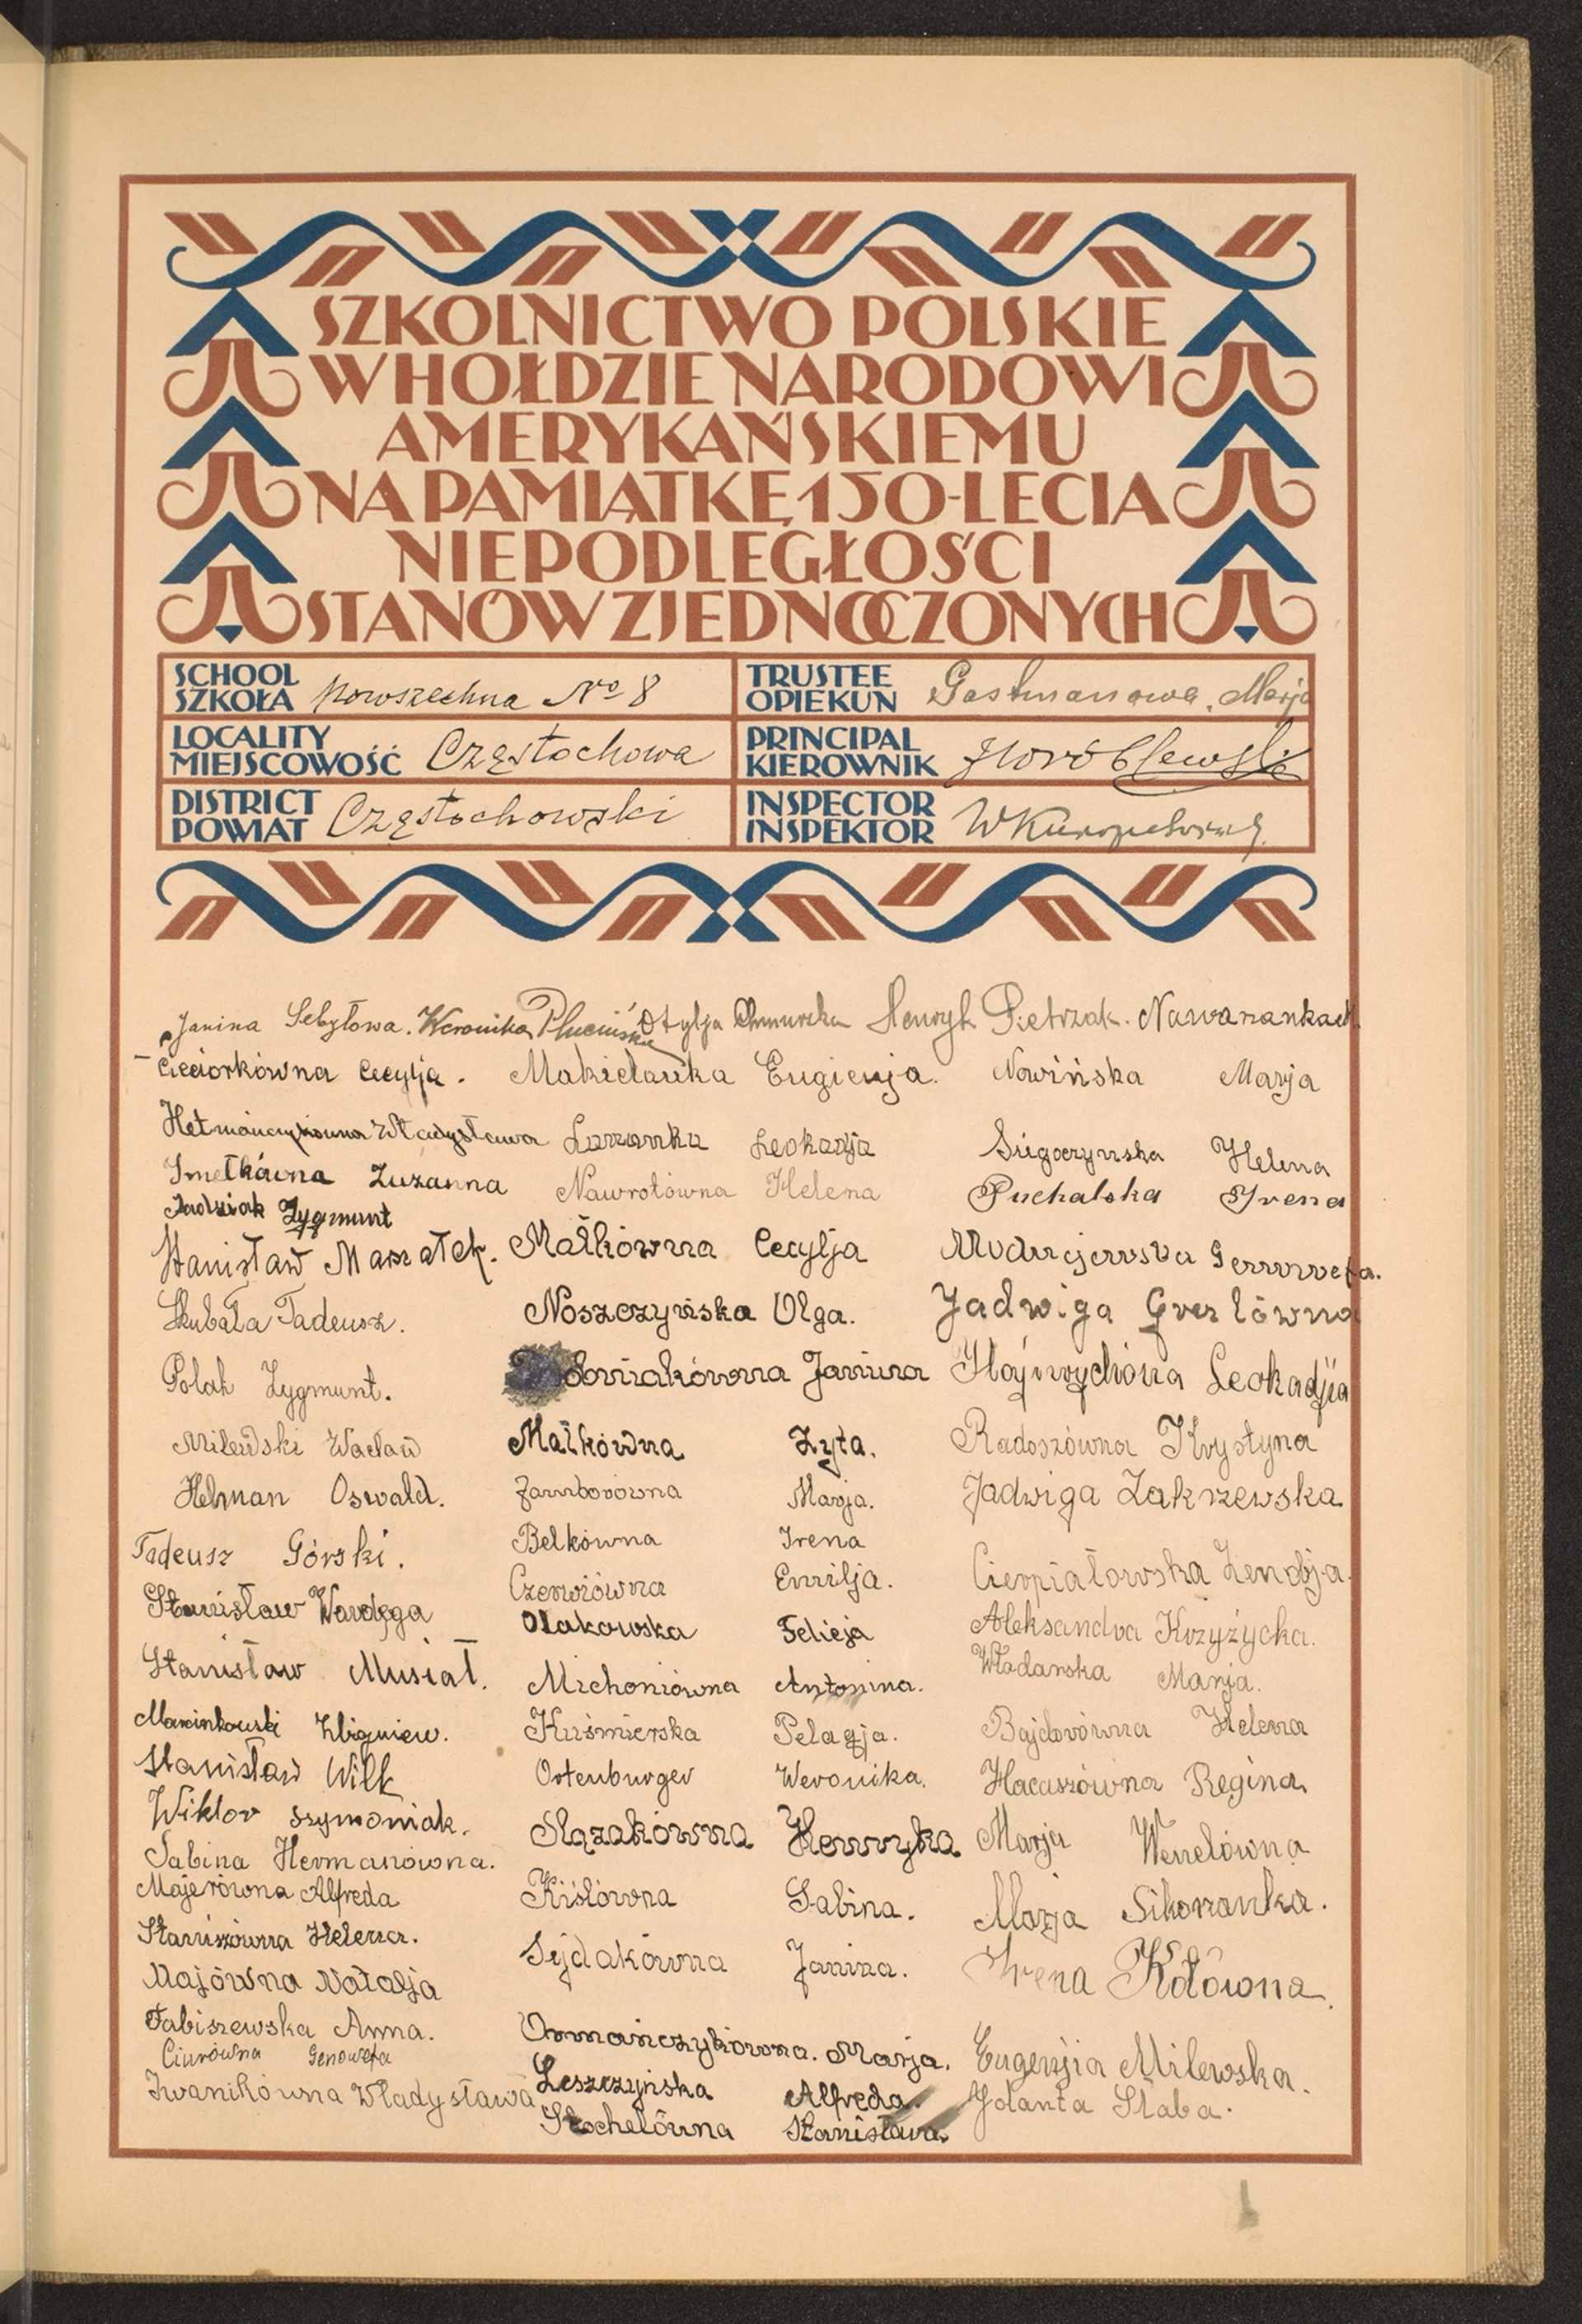 SZKOLNICTWO POLSKIE
W HOŁDZIE NARODOWI
AMERYKAŃSKIEMU
NA PAMIĄTKĘ 150-LECIA
NIEPODLEGŁOŚCI
STANÓW ZJEDNOCZONYCH
SCHOOL
SZKOŁA powszechna No 8
TRUSTEE
OPIEKUN Gastmanowa, Marja
LOCALITY
MIEJSCOWOŚĆ Częstochowa
PRINCIPAL
KIEROWNIK
DISTRICT
POWIAT Częstochowski
INSPECTOR
INSPEKTOR
Janina Sebyłowa. Weronika Plucińska Otylja Chmurska Henryk Pietrzak.
Cieciorkówna Cecylja. Eugienja. Nowińska Marja
Władysława Leokadja Helena
Smetkówna Zuzanna Nawrotówna Helena Puchalska Irena
Jadziak Zygmunt
Stanisław Marzałek. Małkówna Cecylja
Skubała Tadeusz. Noszczyńska Olga. Jadwiga
Polak Zygmunt. Janina Leokadja
Milewski Wacław Małkówna Zyta. Radoszówna Krystyna
Helman Oswald. Jamborówna Marja. Jadwiga Zakrzewska
Tadeusz Górski. Belkówna Irena
Czerwiówna Emilja. Cierpiałowska Zenobja.
Stanisław Wardęga Ołakowska Felicja Aleksandra Krzyżycka.
Stanisław Musiał. Michoniówna Antonina. Włodarska Marja.
Marcinkowski Zbigniew. Kuśmierska Pelagja. Bajdorówna Helena
Stanisław Wilk Ortenburger Weronika. Hacuszówna Regina
Wiktor Szymoniak. Ślązakówna Henryka Marja Wenclówna
Sabina Hermanówna.
Majerówna Alfreda Kiślówna Sabina. Marja Sikoranka.
Staniszówna Helena. Sejdakówna Janina. Irena Kołówna.
Majówna Natalja
Fabiszewska Anna. Ormańczykówna. Marja. Eugenjia Milewska.
Ciurówna Genowefa
Iwanikówna Władysława Leszczyńska Alfreda. Jolanta Słaba.
Stochelówna Stanisława.